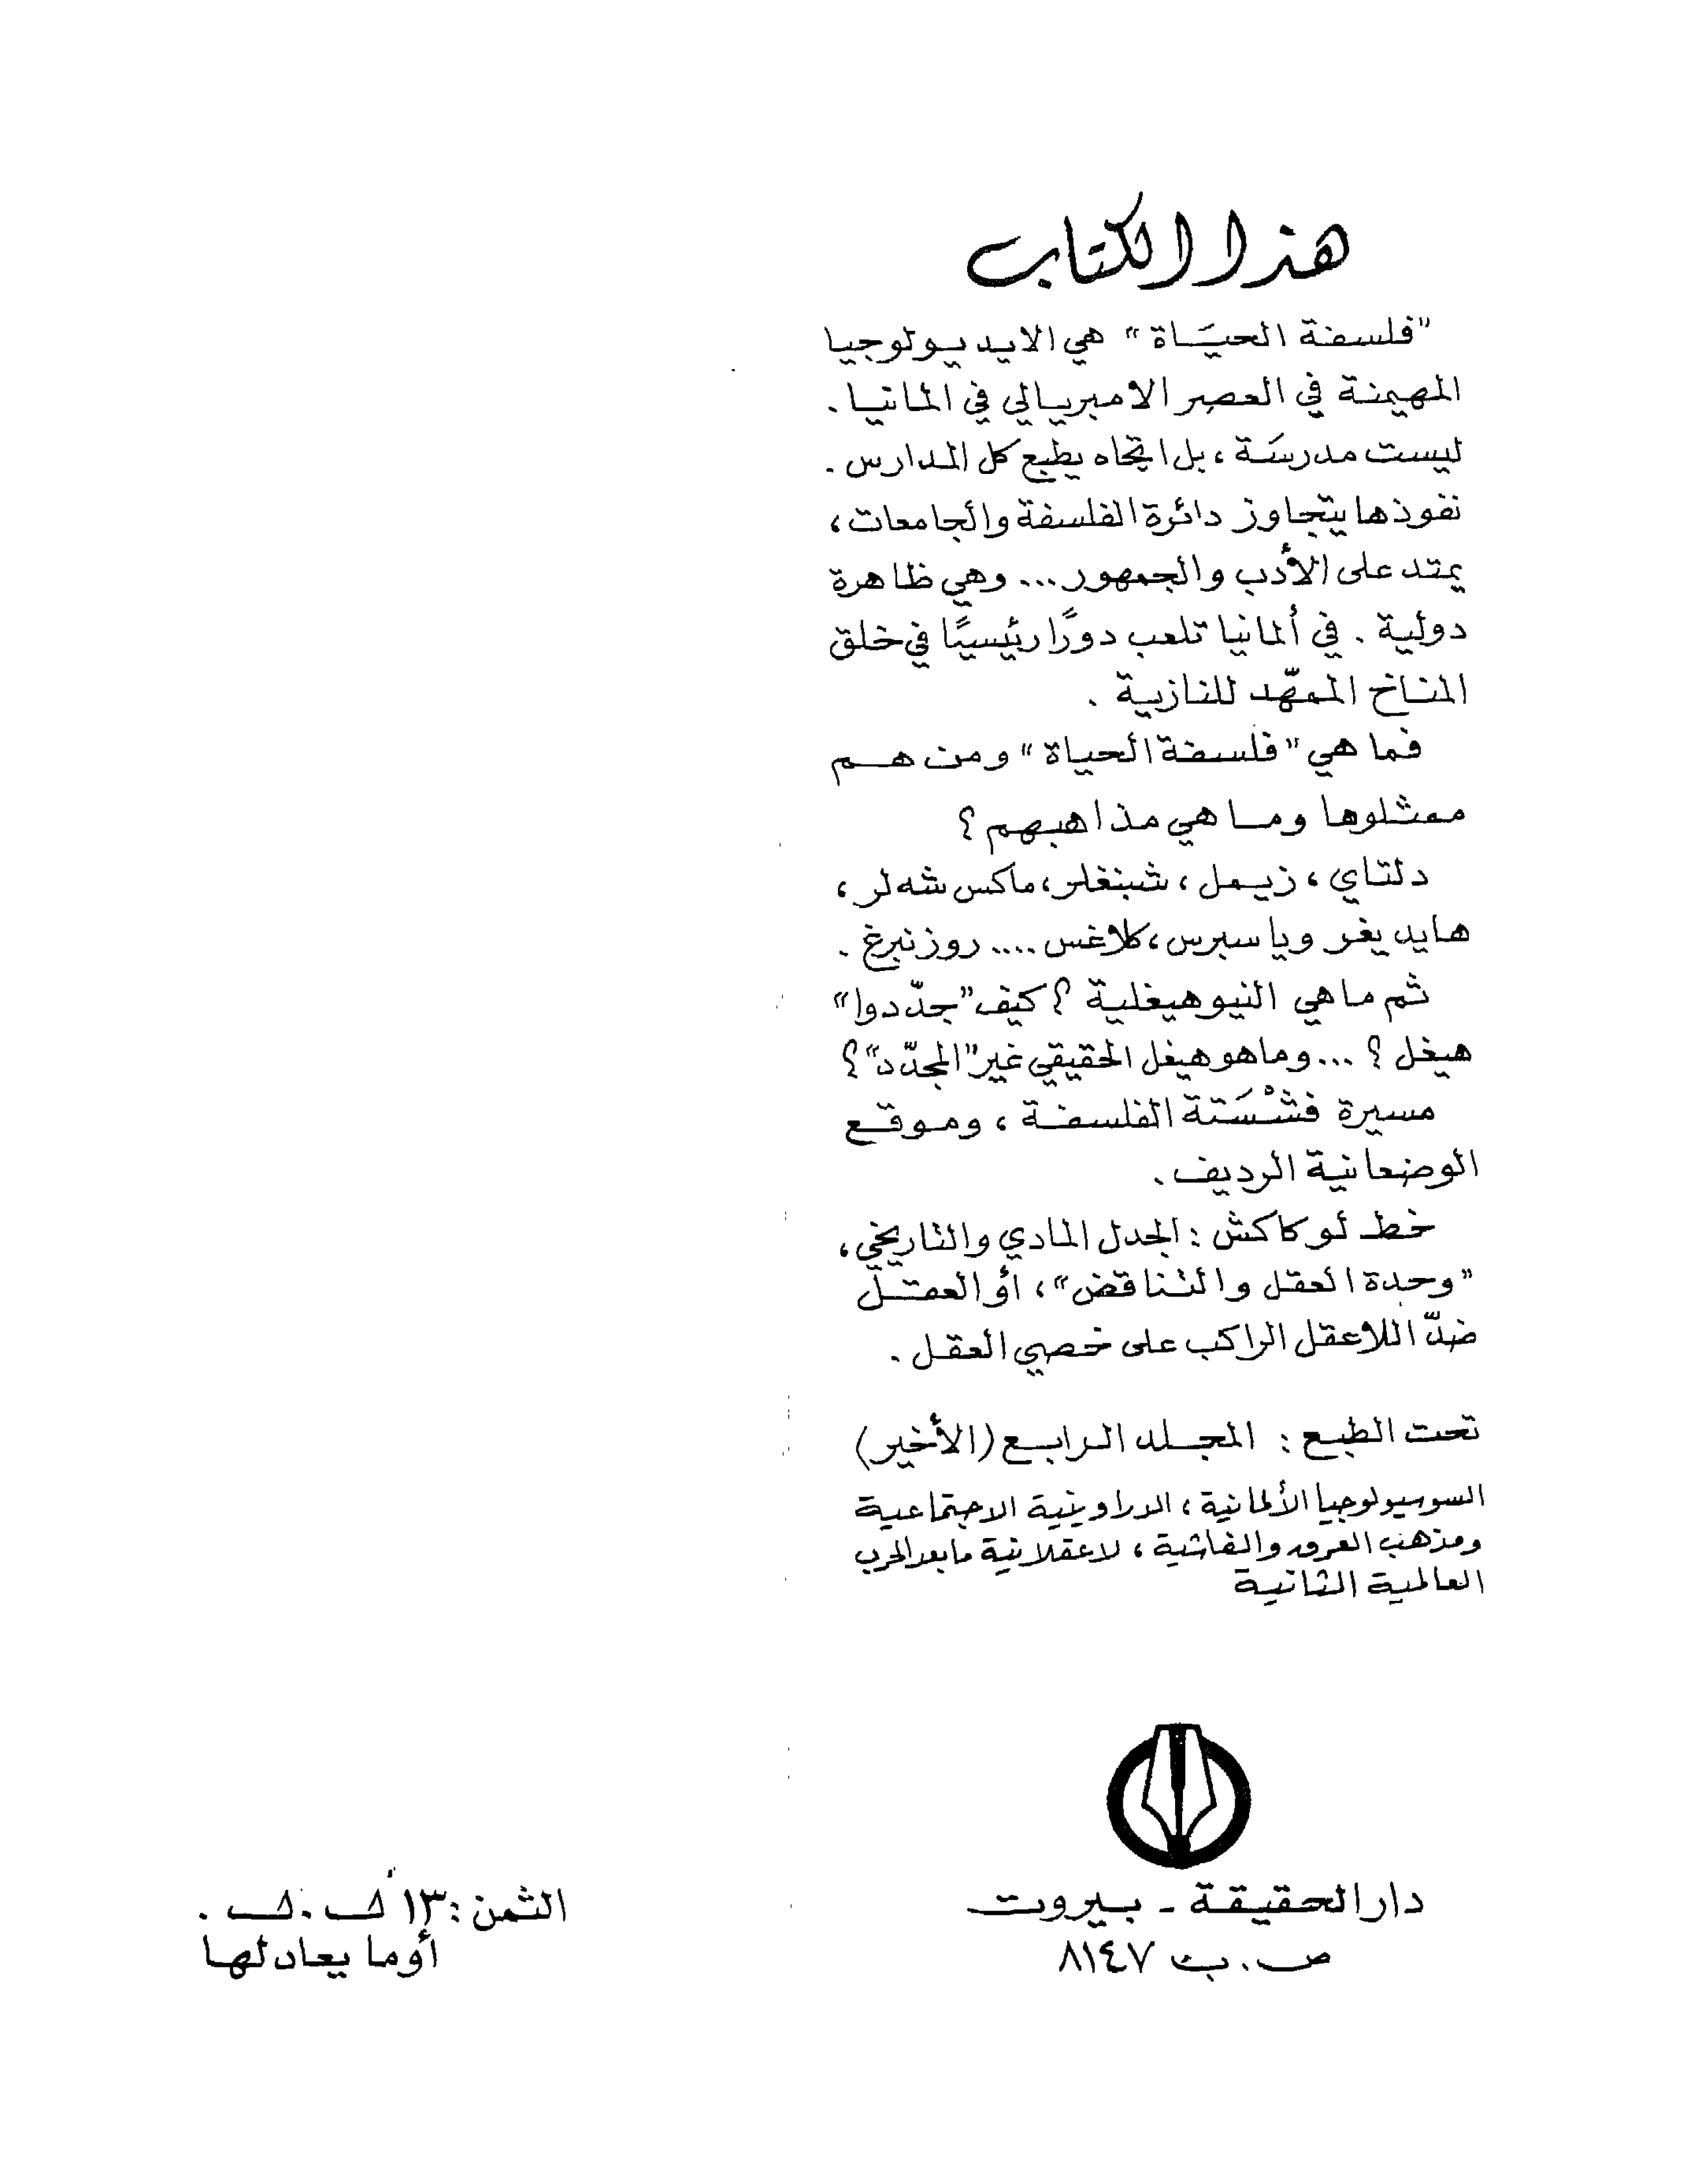 هذا الكتاب
"فلسفة الحيَاة" هي الايديولوجيا
المهيمنة في العصر الامبريالي في المانيا.
ليست مدرسَة، بل اتجاه يطبع كل المدارس.
نفوذها يتجاوز دائرة الفلسفة والجامعات،
يمتد على الأدب والجمهور... وهي ظاهرة
دولية. في ألمانيا تلعب دورًا رئيسيًا في خلق
المناخ الممهّد للنازية.
فما هي "فلسفة الحياة" ومن هم
ممثلوها وما هي مذاهبهم؟
دلتاي، زيمل، شبنغلر، ماكس شه لر،
هايديغر وياسبرس، كلاغس .... روزنبرغ.
ثم ماهي النيوهيغلية؟ كيف "جدّدوا"
هيغل؟ ...وماهو هيغل الحقيقي غير "المجدّد"؟
مسيرة فشْسَتة الفلسفة، وموقع
الوضعانية الرديف.
خط لوكاكش: الجدل المادي والتاريخي،
"وحدة العقل والتناقض"، أو العقل
ضدّ اللاعقل الراكب على خصي العقل.
تحت الطبع: المجلد الرابع (الأخير)
السوسيولوجيا الألمانية، الدراوينية الاجتماعية
ومذهب العرق والفاشية، لاعقلانية مابعد الحرب
العالمية الثانية
دار الحقيقة - بيروت
ص.ب ٨١٤٧
الثمن: ١٣ ل.ل.
أوما يعادلها